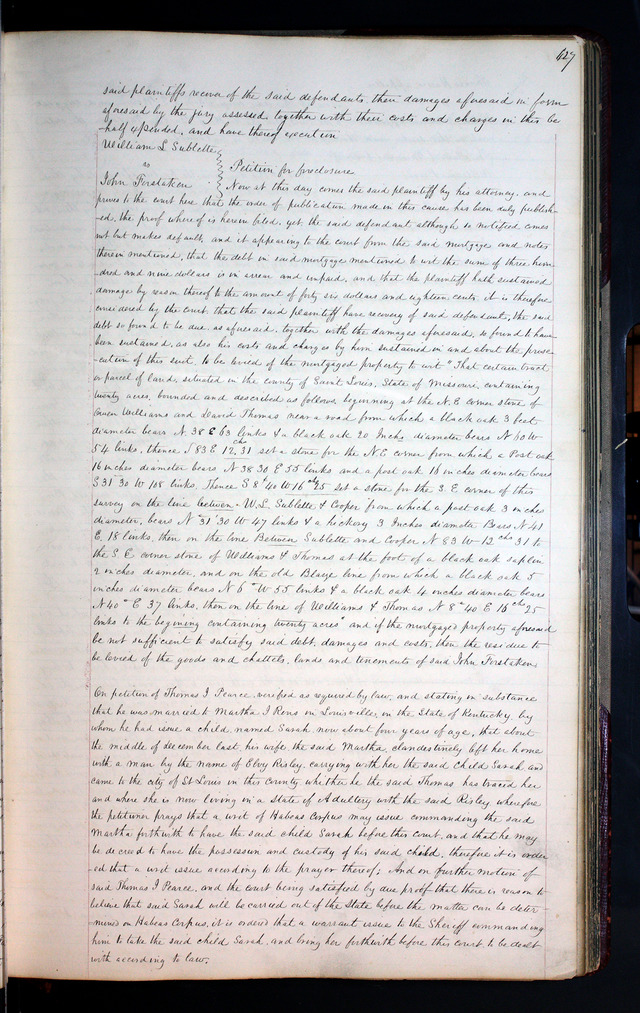 627
said plaintiffs recover of the said defendants, their damages aforesaid in form
aforesaid by the jury assessed, together with their costs and charges in this be
-half expended, and have thereof execution
William L Sublette
vs
Petition for foreclosure
John Forstaken
Now at this day comes the said plaintiff by his attorney, and
proves to the court here that the order of publication made in this cause has been duly publish-
-ed, the proof whereof is herein filed; yet the said defendant although so notified comes
not but makes default, and it appearing to the court from the said mortgage and notes
therein mentioned, that the debt in said mortgage mentioned to wit the sum of three hun-
dred and nine dollars is in arrear and unpaid, and that the plaintiff hath sustained
damage by reason thereof to the amount of forty six dollars and eighteen cents, it is therefore
considered by the court, that the said plaintiff have recovery of said defendant, the said
debt so found to be due as aforesaid, together with the damages aforesaid, so found to have
been sustained, as also his costs and charges by him sustained in and about the prose-
-cution of this suit, to be levied of the mortgaged property to wit "That certain tract
or parcel of land, situated in the county of Saint Louis, State of Missouri, containing
twenty acres, bounded and described as follows, beginning at the N.E corner stone of
Owen Williams and David Thomas near a road from which a black oak 3 feet
diameter bears N. 38 E 63 links & a black oak 20 Inchs diameter bears N 60 W
54 links, thence S 83 E 12 chs 31 set a stone for the N.E corner from which a Post oak
16 inches diameter bears N 38 30 E 55 links and a post oak 16 inches diameter bears
S 31 30 W 108 links, Thence S 8° 40 W 16 chs 25 set a stone for the S. E corner of this
survey on the line between W.L. Sublette & Cooper from which a post oak 3 inches
diameter, bears N 31° 30 W 47 links & a hickory 3 Inches diameter Bears N 41
E. 18 links, then on the line Between Sublette and Cooper N 83 W 12 chs 31 to
the S E corner stone of Williams & Thomas at the foot of a black oak saplin
2 inches diameter, and on the old Blaize line from which a black oak 5
inches diameter bears N 6° W 55 links & a black oak 4 inches diameter bears
N 40° E 37 links, then on the line of Williams & Thomas N 8° 40 E 16 chs 25
links to the begining containing twenty acres" and if the mortgaged property aforesaid
be not sufficient to satisfy said debt, damages and costs, then the residue to
be levied of the goods and chattels, lands and tenements of said John Forstaken,
On petition of Thomas I Pearce, verified as required by law, and stating in substance
that he was married to Martha I Rens in Louisville, in the State of Kentucky, by
whom he had issue a child, named Sarah now about four years of age, that about
the middle of december last, his wife the said Martha, clandestinely left her home
with a man by the name of Elvy Risley, carrying with her the said child Sarah and
came to the city of St Louis in this County whither he the said Thomas has traced her
and where she is now living in a state of Adultery with the said Risley, wherefore
the petitioner prays that a writ of Habeas Corpus may issue commanding the said
Martha forthwith to have the said child Sarah before this court, and that he may
be decreed to have the possession and custody of his said child, therefore it is order-
ed that a writ issue according to the prayer thereof; And on further motion of
said Thomas I Pearce, and the court being satisfied by due proof that there is reason to
believe that said Sarah will be carried out of the State before the matter can be deter-
mined on Habeas Corpus, it is ordered that a warrant issue to the Sheriff commanding
him to take the said child Sarah, and bring her forthwith before this court to be dealt
with according to law,